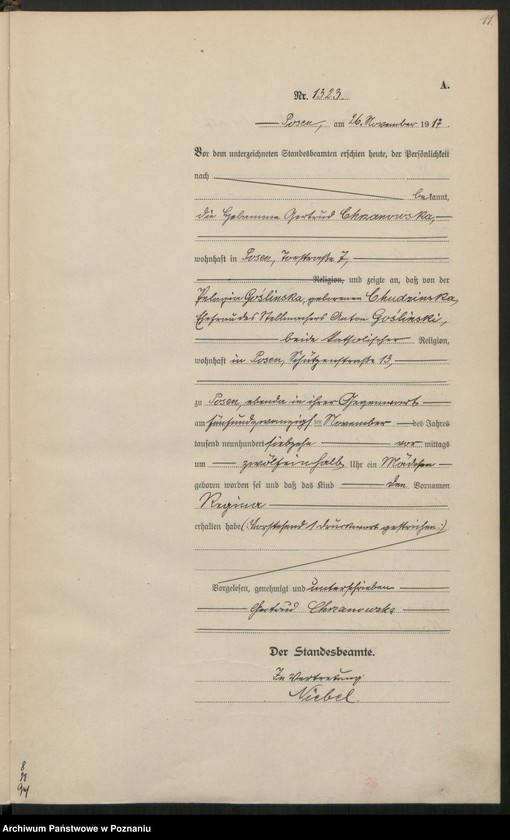 11.
A.
Nr. 1323.
Posen, am 26. November 1917
Vor dem unterzeichneten Standesbeamten erschien heute, der Persönlichkeit
nach
be kannt,
die Hebamme Gertrud Chrzanowska,
wohnhaft in Posen, Torstraße 7,
Religion, und zeigte an, daß von der
Pelagia Goślinska, geborenen Chudzinska,
Ehefrau des Stellmachers Anton Gośliński,
beide katholischer Religion,
wohnhaft in Posen, Schützenstraße 13,
zu Posen, ebenda in ihrer Gegenwart
am fünfundzwanzigsten November des Jahres
tausend neunhundert siebzehn vor mittags
um zwölfeinhalb Uhr ein Mädchen
geboren worden sei und daß das Kind den Vornamen
Regina
erhalten habe (Vorstehend 1 Druckwort gestrichen.)
Vorgelesen, genehmigt und unterschrieben
Gertrud Chrzanowska
Der Standesbeamte.
In Vertretung
Niebel.
Archiwum Państwowe w Poznaniu